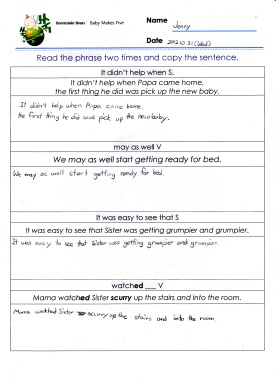 Berenstain Bears® Baby Makes Five
Name Jenny
Date 2012.10.31 (Wed)
Read the phrase two times and copy the sentence.
It didn't help when S.
It didn't help when Papa came home,
the first thing he did was pick up the new baby.
It didn't help when Papa came home,
the first thing he did was pick up the new baby.
may as well V
We may as well start getting ready for bed.
We may as well start getting ready for bed.
It was easy to see that S
It was easy to see that Sister was getting grumpier and grumpier.
It was easy to see that Sister was getting grumpier and grumpier.
watched ___ V
Mama watched Sister scurry up the stairs and into the room.
Mama watched Sister scurry up the stairs and into the room.